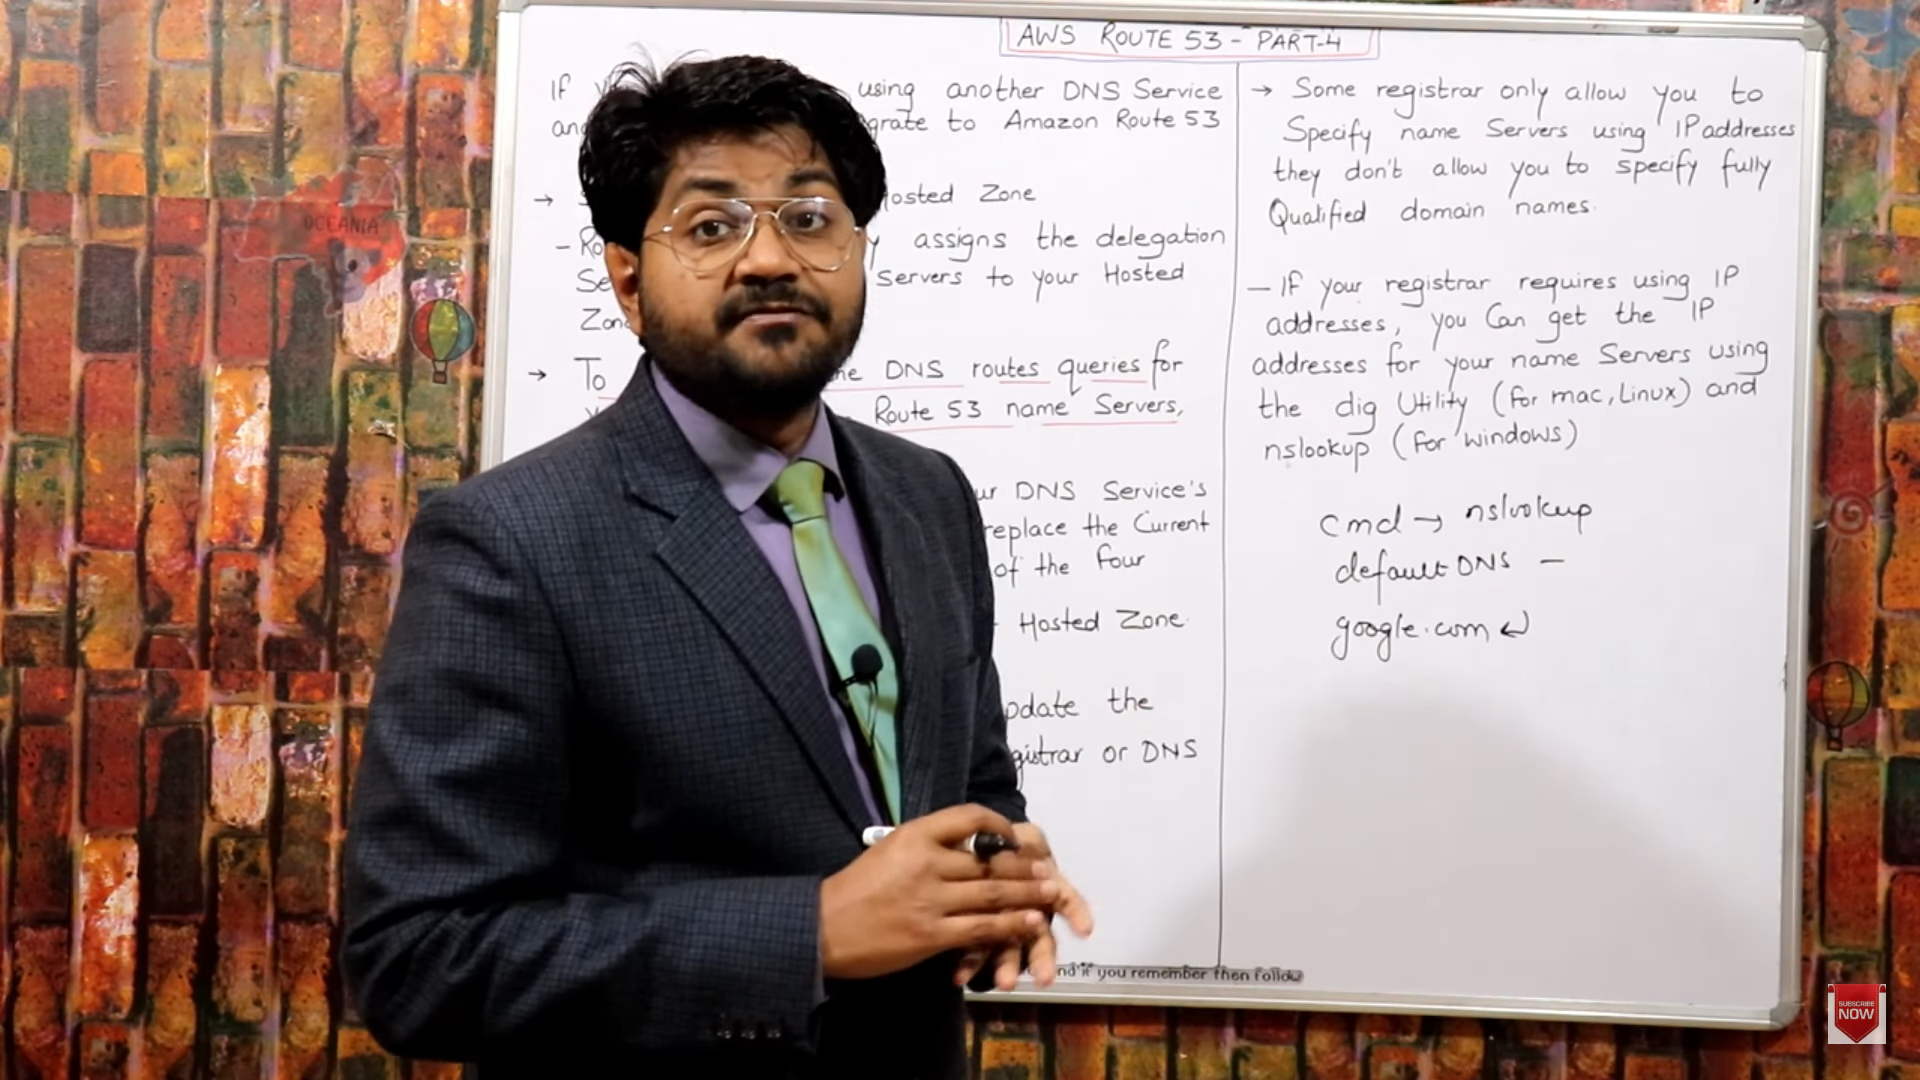 AWS ROUTE 53 - PART-4
If using another DNS Service
to Amazon Route 53
→ Hosted Zone
- assigns the delegation
Servers to your Hosted
→ To DNS routes queries for
Route 53 name Servers,
DNS Service's
replace the Current
of the four
Hosted Zone.
the
or DNS
→ Some registrar only allow you to
Specify name Servers using IP addresses
they don't allow you to specify fully
Qualified domain names.
- If your registrar requires using IP
addresses, you Can get the IP
addresses for your name Servers using
the dig Utility (for mac, Linux) and
nslookup (for windows)
cmd → nslookup
default DNS -
google.com ↵
if you remember then follow
OCEANIA
SUBSCRIBE
NOW